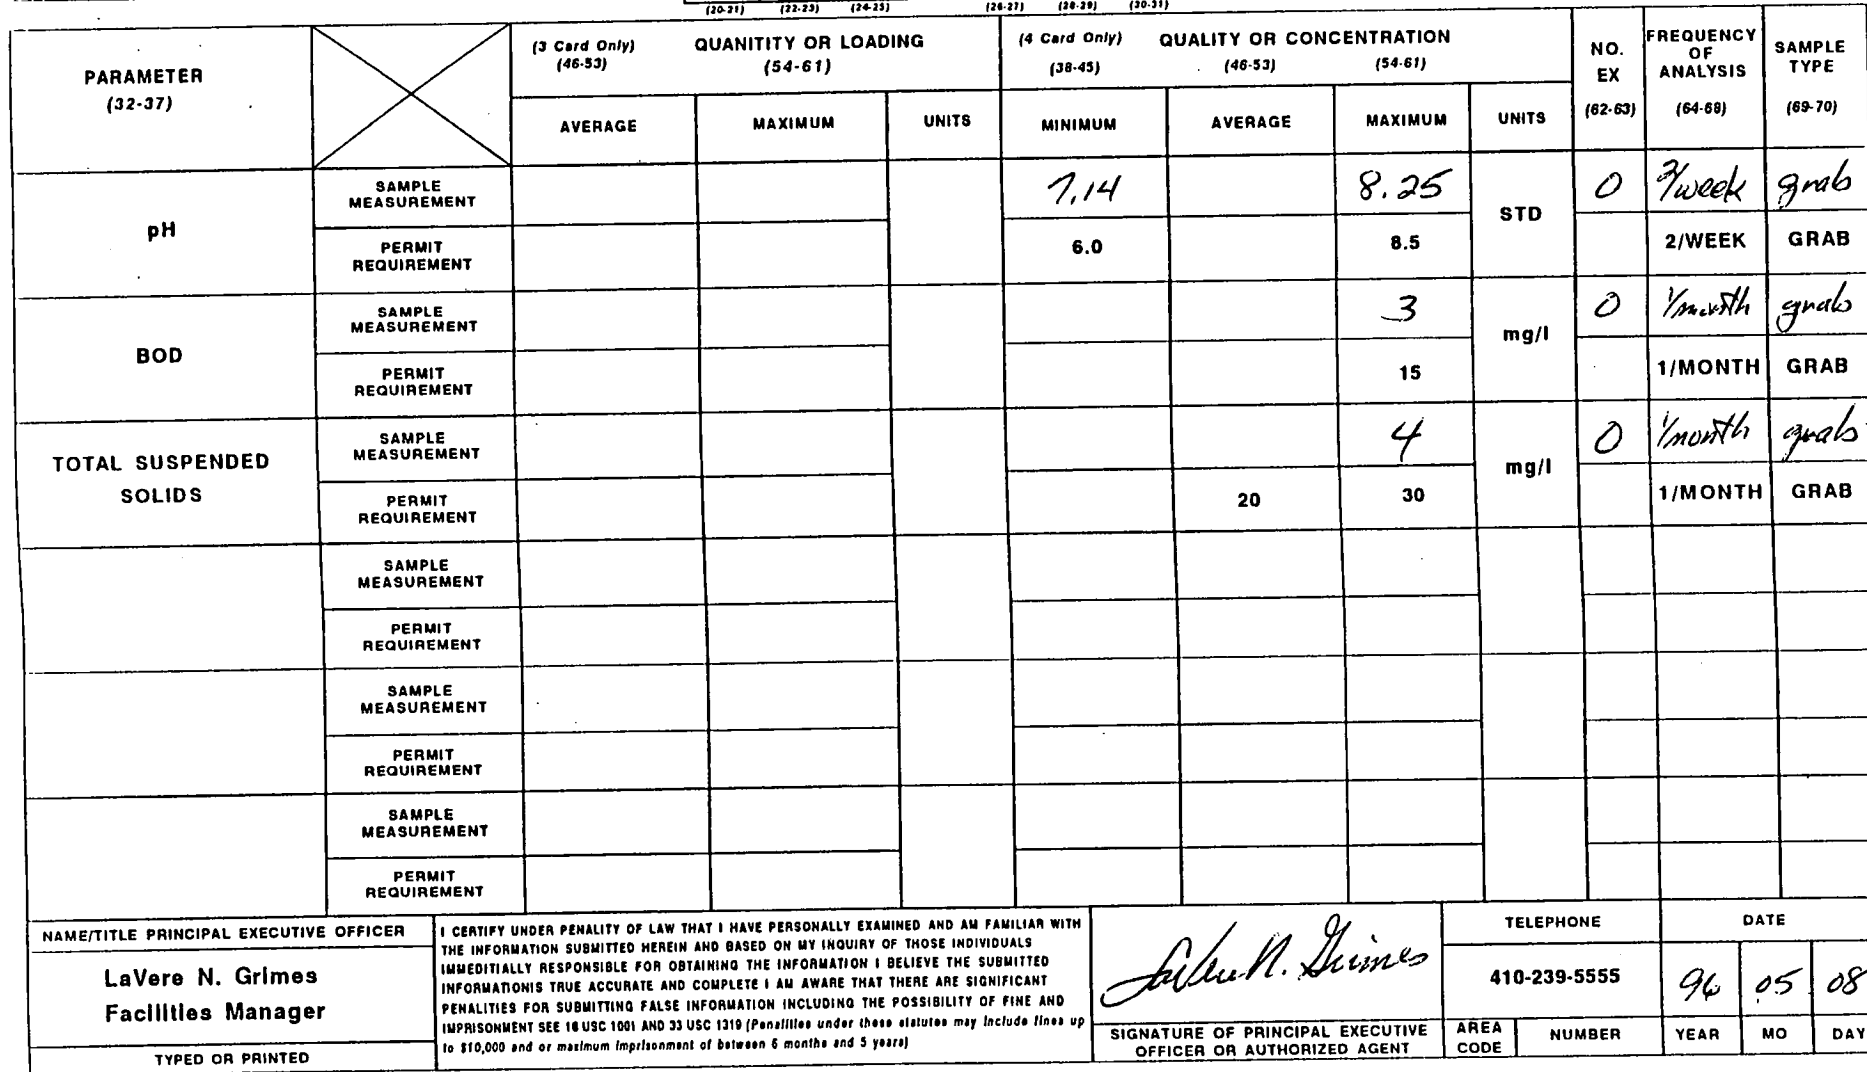 (20-21) (22-23) (24-25) (26-27) (28-29) (30-31)
PARAMETER
(32-37)
(3 Card Only) QUANITITY OR LOADING
(46-53) (54-61)
(4 Card Only) QUALITY OR CONCENTRATION
(38-45) (46-53) (54-61)
NO.
EX
(62-63)
FREQUENCY
OF
ANALYSIS
(64-68)
SAMPLE
TYPE
(69-70)
AVERAGE MAXIMUM UNITS MINIMUM AVERAGE MAXIMUM UNITS
pH
SAMPLE
MEASUREMENT
7.14 8.25 STD 0 2/week grab
PERMIT
REQUIREMENT
6.0 8.5 2/WEEK GRAB
BOD
SAMPLE
MEASUREMENT
3 mg/l 0 1/month grab
PERMIT
REQUIREMENT
15 1/MONTH GRAB
TOTAL SUSPENDED
SOLIDS
SAMPLE
MEASUREMENT
4 mg/l 0 1/month grab
PERMIT
REQUIREMENT
20 30 1/MONTH GRAB
SAMPLE
MEASUREMENT
PERMIT
REQUIREMENT
SAMPLE
MEASUREMENT
PERMIT
REQUIREMENT
SAMPLE
MEASUREMENT
PERMIT
REQUIREMENT
NAME/TITLE PRINCIPAL EXECUTIVE OFFICER
LaVere N. Grimes
Facilities Manager
TYPED OR PRINTED
I CERTIFY UNDER PENALITY OF LAW THAT I HAVE PERSONALLY EXAMINED AND AM FAMILIAR WITH
THE INFORMATION SUBMITTED HEREIN AND BASED ON MY INQUIRY OF THOSE INDIVIDUALS
IMMEDITIALLY RESPONSIBLE FOR OBTAINING THE INFORMATION I BELIEVE THE SUBMITTED
INFORMATIONIS TRUE ACCURATE AND COMPLETE I AM AWARE THAT THERE ARE SIGNIFICANT
PENALITIES FOR SUBMITTING FALSE INFORMATION INCLUDING THE POSSIBILITY OF FINE AND
IMPRISONMENT SEE 18 USC 1001 AND 33 USC 1319 (Penalities under these statutes may include fines up
to $10,000 and or maximum imprisonment of between 6 months and 5 years)
LaVere N. Grimes
SIGNATURE OF PRINCIPAL EXECUTIVE
OFFICER OR AUTHORIZED AGENT
TELEPHONE
410-239-5555
AREA
CODE
NUMBER
DATE
96 05 08
YEAR MO DAY